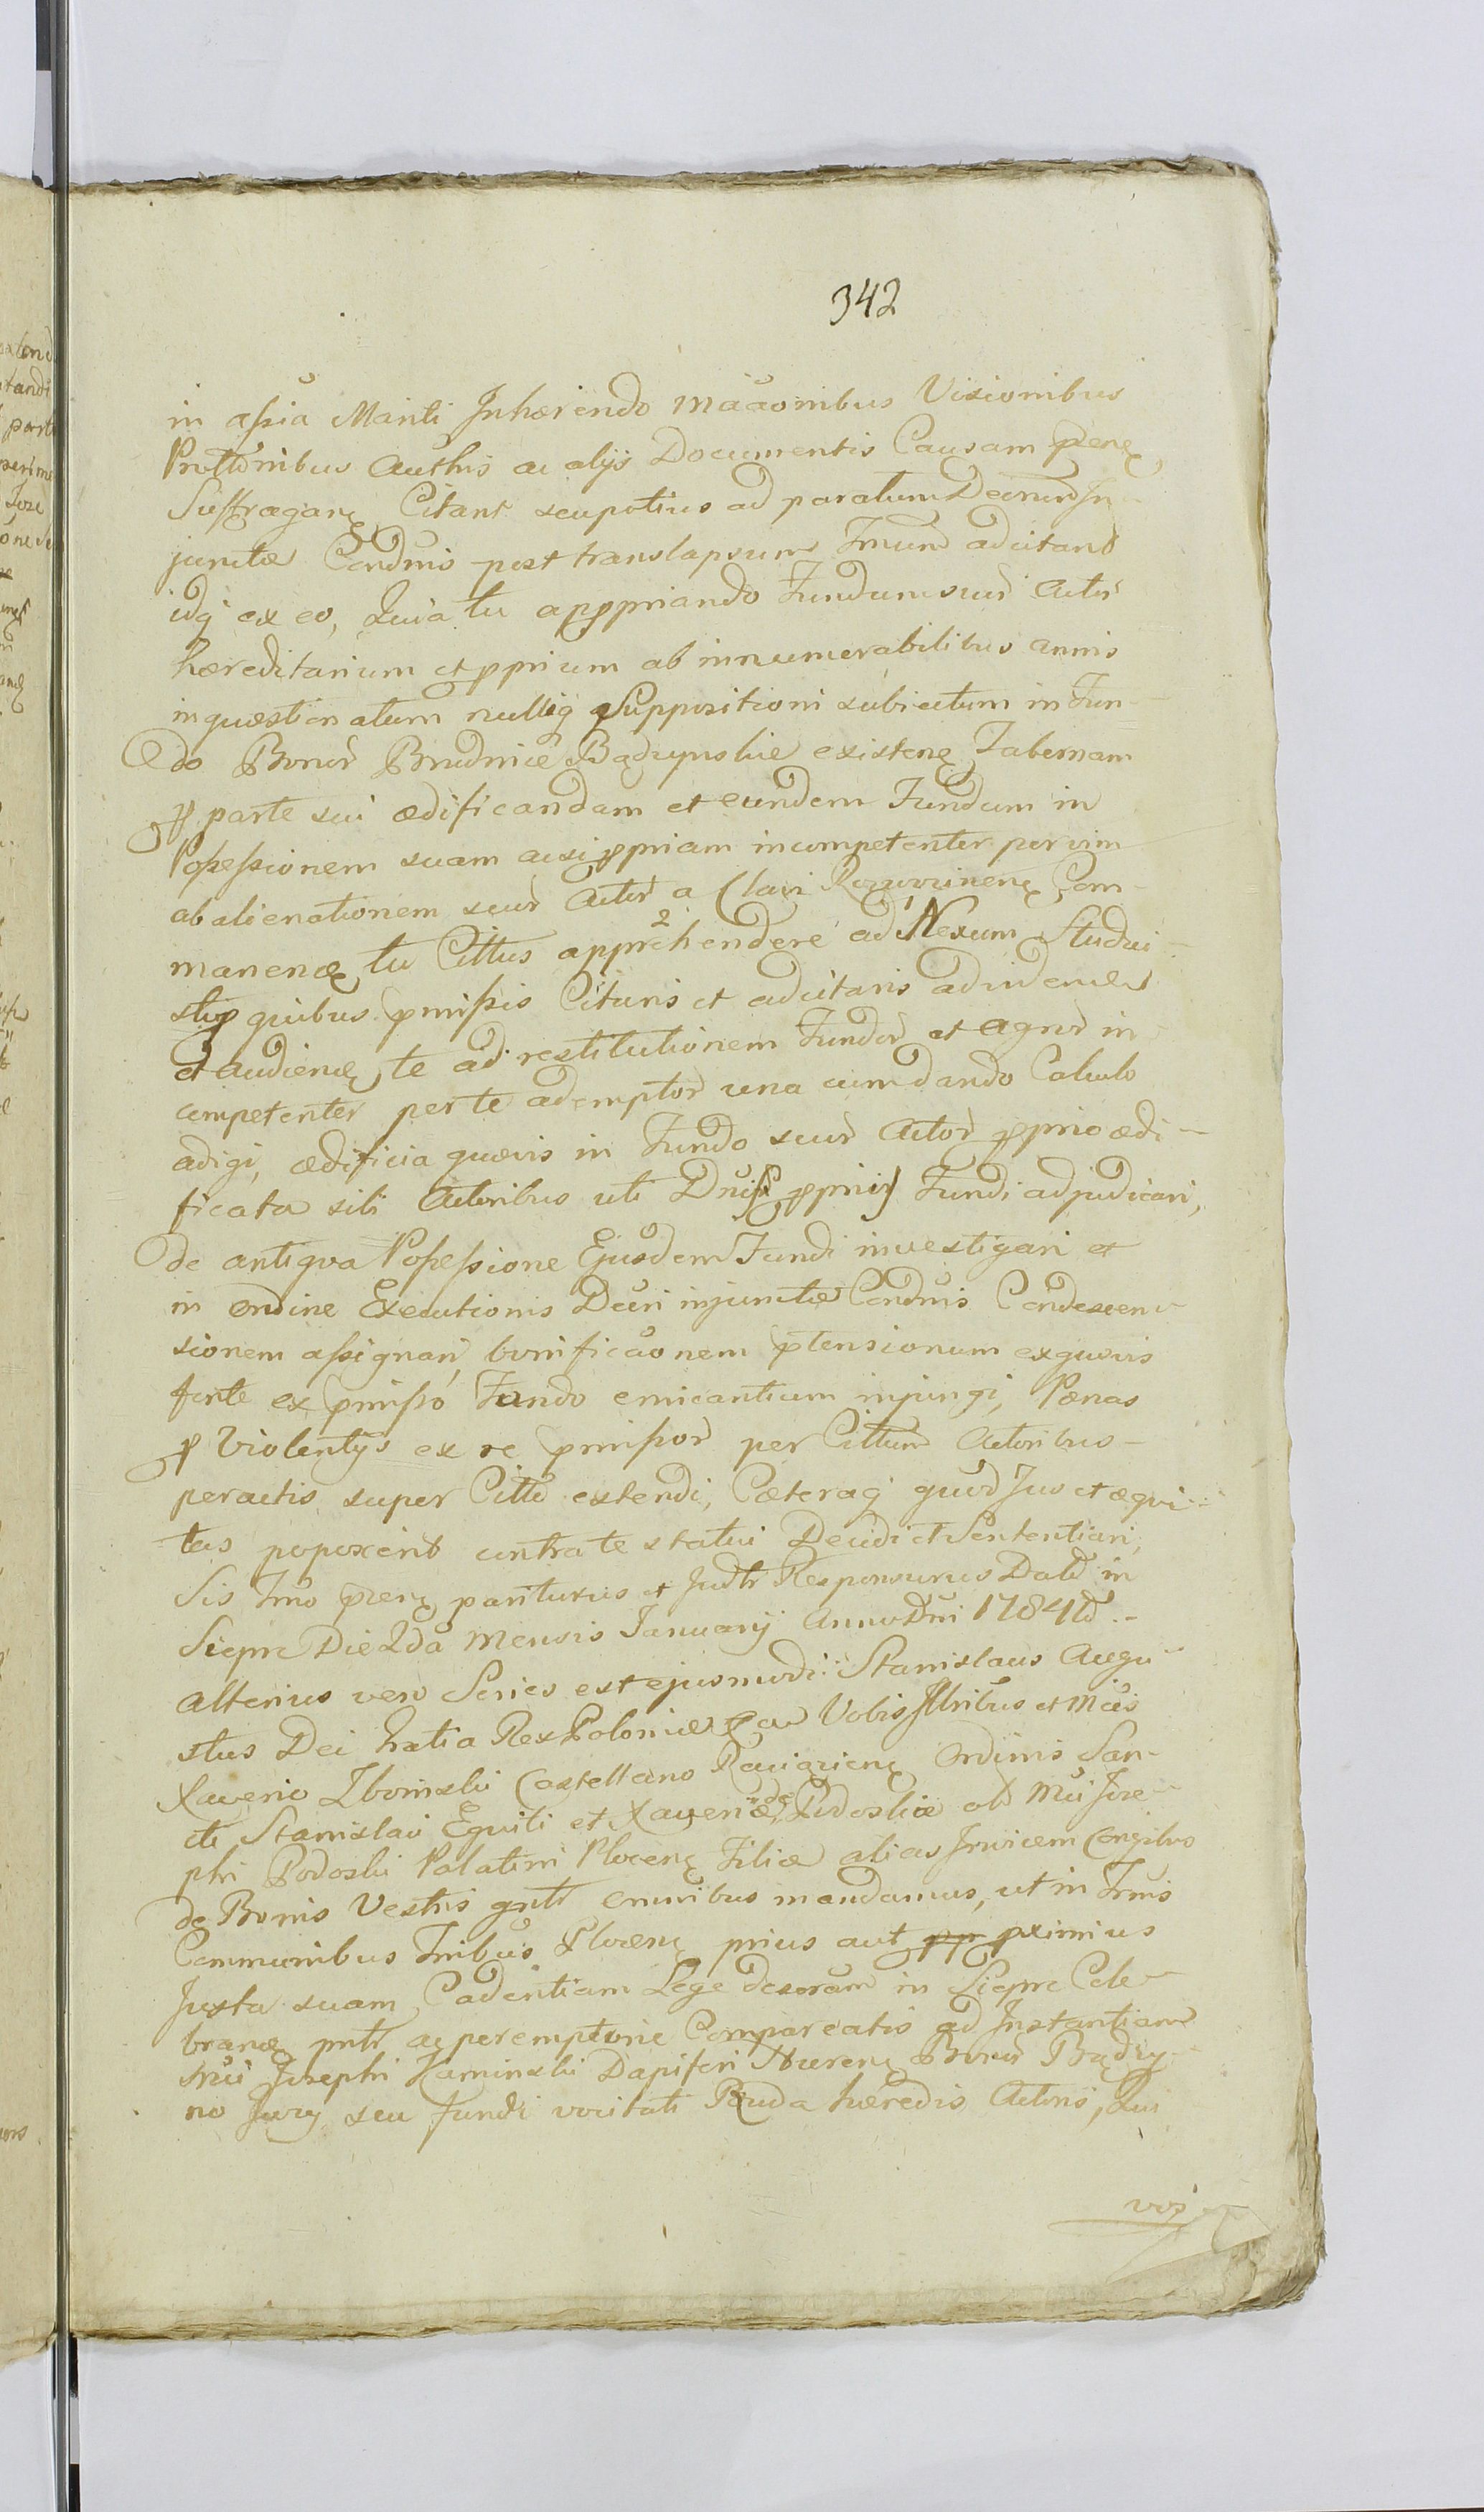 342
in assia Manti Inhærendo Maăonibus Visionibus
Prottonibus Authis ac alijs Documentis Causam præne
Suffragane Citant seupotius ad paratum Decretū In-
junctæ Condnis post translapsum Tmum adcitant
idq ex eo, Quia tu appropriando Fundum suū Actor
hæreditarium et pprium ab innumerabilibus annis
inquæstionatum nulliq Suppositioni subiectum in Fun-
do Bonor Brudnice Bądzynskie existen Tabernam
p parte sui ædificandam et eundem Fundum in
Possessionem suam acsi ppriam incompetenter per vim
abalienationem suor Actor a Clari Com-
manen tu Cittus apprehendere ad Nexum Studui
stip quibus pmissis Citaris et adcitaris ad videnū
et audienū te ad restitutionem Fundor et agror in-
competenter per te ademptor una cum dando Calculo
adigi, ædificia quævis in Fundo suor Actor pprio ædi-
ficata sibi Actoribus uti Dnis pprijs Fundi adjudicari,
de antiqua Possessione Ejusdem Fundi investigari et
in ordine Executionis Decri injunctæ Condnis Condescen-
sionem assignari, bonificaonem ptensionum exquovis
fonte ex pmisso Fundo emicantium injungi, Pænas
p Violentijs ex re pmissor per Cittum Actoribus
peractis super Citto extendi, Cæteraq quod Jus et æqui-
tas poposcerit contra te statui Decidi et Sententiari,
Sis Tmo præn pariturus et Judtr Responsurus Datt in
Sieprc Die 2da Mensis Januarij Anno Dni 1784to
Alterius vero Series est ejusmodi: Stanislaus Augu-
stus Dei Gratia Rex Poloniæ Vobis Illribus et Mcis
Xaverio Zboinski Castellano Raciązien Ordinis San-
cti Stanislai Equiti et Xaveriæ de Podoskie ol Mci Jose-
phi Podoski Palatini Plocen Filiæ alias Invicem Congibus
de Bonis Vestris gnlr omnibus mandamus, ut in Tmis
Communibus Tribus Plocen prius aut pp pximius
Juxta suam Cadentiam Lege descram in Sieprc Cele-
bran pntr ac peremptorie Compareatis ad Instantiam
Josephi Kaminski Dapiferi Nuren Bonor Bądzy-
no Jury seu fundi vocitati Ruda hæredis Actoris, Qui
vos